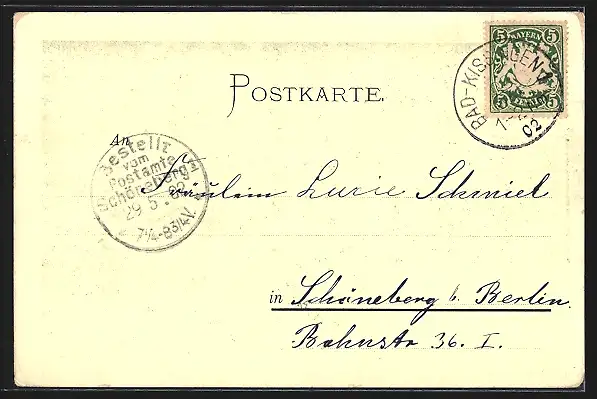 POSTKARTE.
5 BAYERN 5
5 5
BAD-KISSINGEN
02
An
Bestellt
vom
Postamte
Schöneberg
29 5. 02
7¼-8¾V.
Fräulein Lucie Schmiel
in Schöneberg b. Berlin.
Bahnstr 36. I.